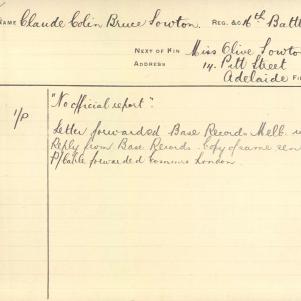 NAME Claude Colin Bruce Lowton. REG. &C. 16th Batt
NEXT OF KIN Miss Olive Lowton
ADDRESS 14, Pitt Street
Adelaide
"No official report".
Letter forwarded Base Records Melb.
Reply from Base Records. Copy of same sent
P/Cable forwarded London.